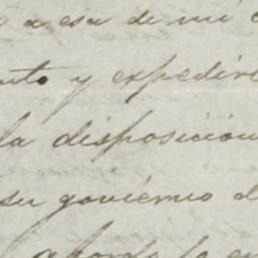 a esa de mi
nto y expedir
la disposicion
su goviérno d
abordo